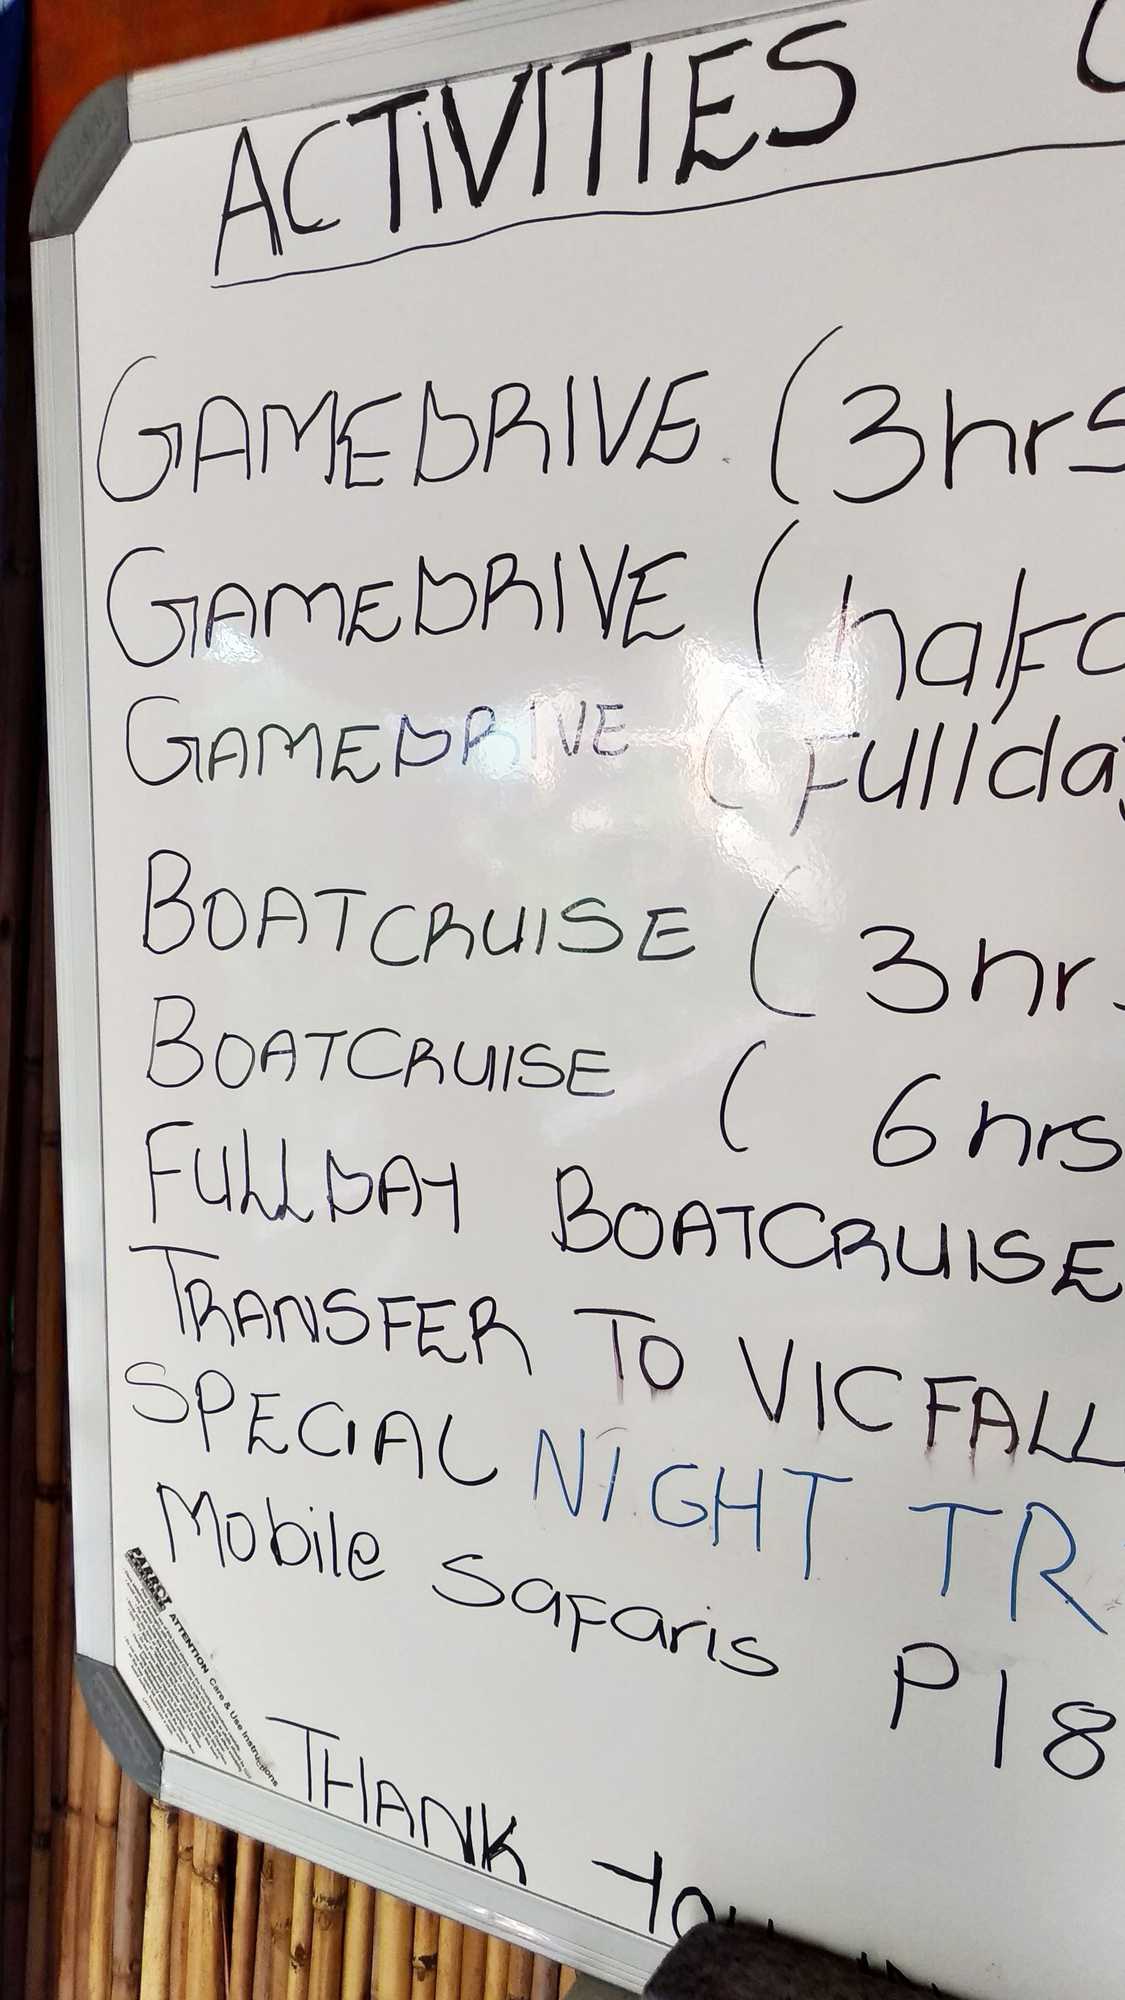 ACTiVITIES
GAMEDRIVE (3hrs
GAMEDRIVE (halF
GAMEDRIVE (Fullday
BOATCRUISE (3hrs
BOATCRUISE (6hrs
FULLDAY BOATCRUISE
TRANSFER TO VICFALL
SPECIAL NIGHT TR
Mobile SaFaris P18
PARROT
ATTENTION Care & Use Instructions
THANK YOU